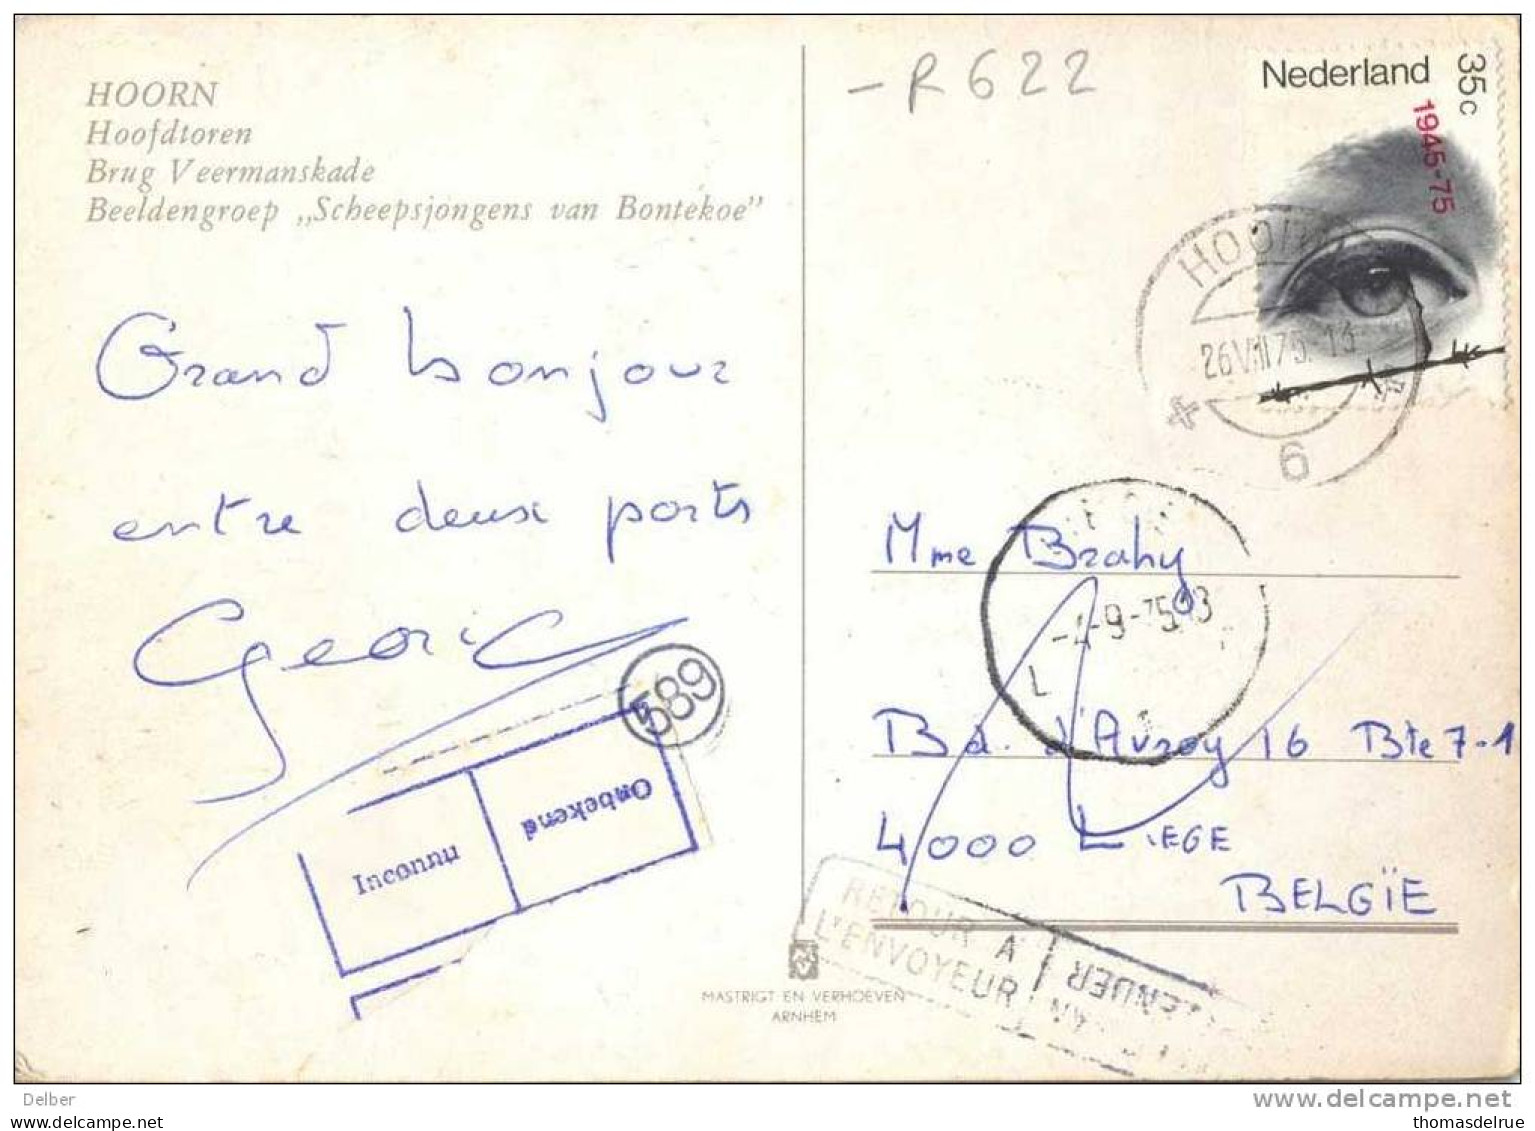 HOORN
Hoofdtoren
Brug Veermanskade
Beeldengroep „Scheepsjongens van Bontekoe"
Grand bonjour
entre deux ports
589
Inconnu
Onbekend
- R 622
Nederland
35c
1945-75
26 VIII 75. 13
6
Mme Brahy
-9-75 13
L
Bd. d'Avroy 16 Bte 7-1
4000 LIEGE
BELGÏE
RETOUR A
L'ENVOYEUR
MASTRIGT EN VERHOEVEN
ARNHEM
Delber
delcampe.net
delcampe.net
thomasdelrue